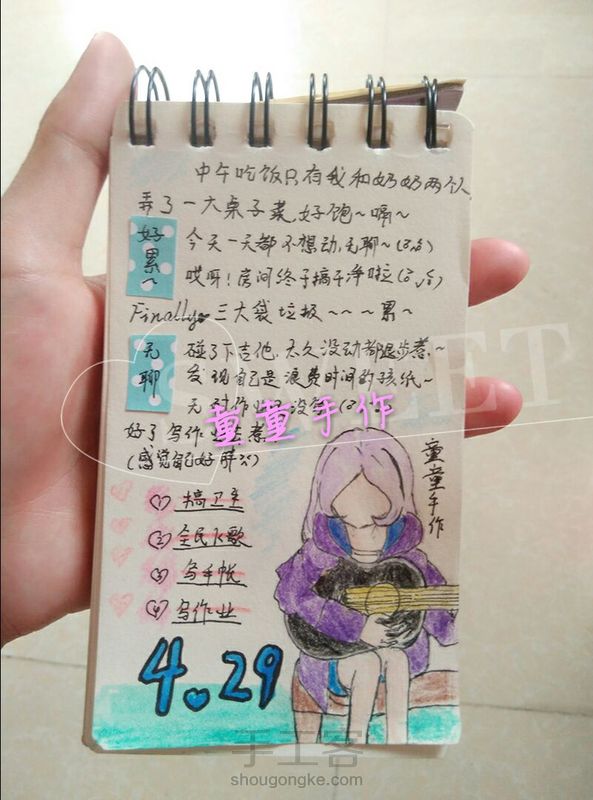 中午吃饭只有我和奶奶两个人
弄了一大桌子菜好饱~嗝~
好累~
今天一天都不想动,无聊~
哎呀!房间终于搞干净啦
Finally~三大袋垃圾~~~累~
无聊
碰了下吉他,太久没动都退步惹~
发现自己是浪费时间的孩纸~
好了写作业去惹
(感觉自己好胖
童童手作
童童手作
① 搞卫生
② 全民K歌
③ 写手帐
④ 写作业
4.29
手工客
shougongke.com